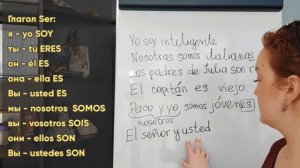 Глагол Ser:
я - yo SOY
ты - tú ERES
он - él ES
она - ella ES
Вы - usted ES
мы - nosotros SOMOS
вы - vosotros SOIS
они - ellos SON
Вы - ustedes SON
Yo soy inteligente
Nosotras somos italianas
Los padres de Julia son
El capitán es viejo.
Paco y yo somos jóvenes
nosotros
El señor y usted